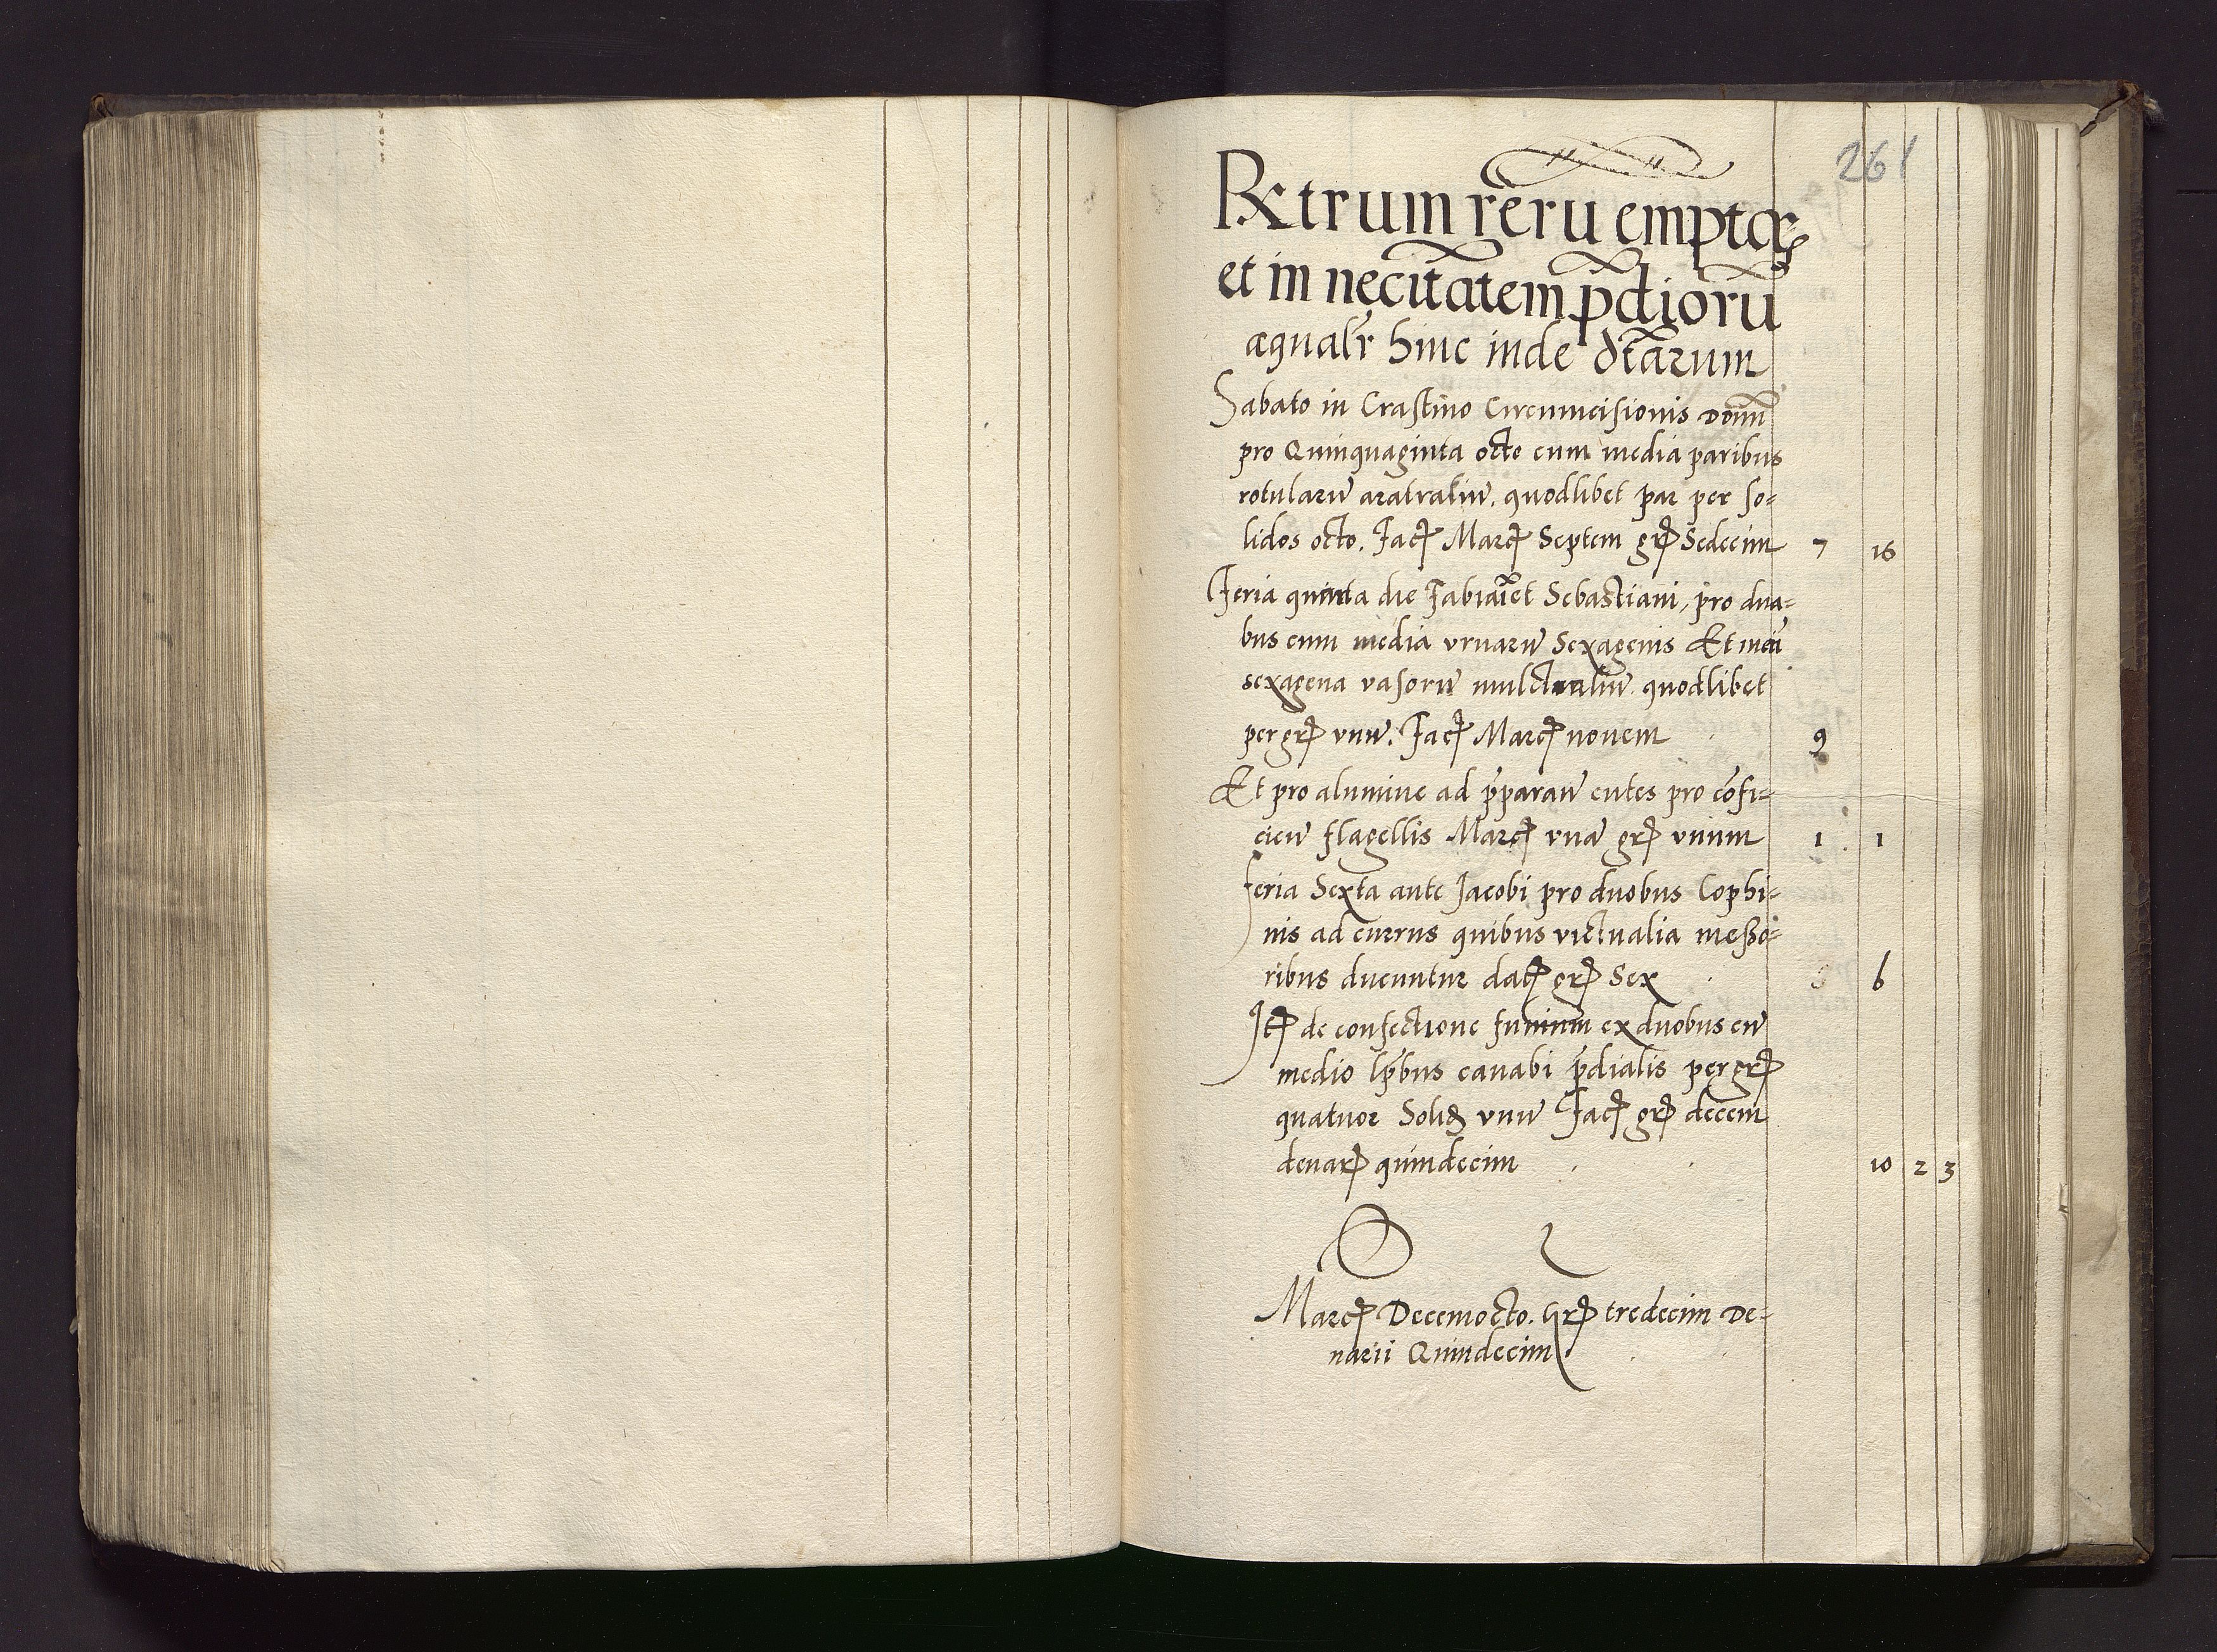 261
Rxtrum rerū emptaꝝ
et in necitatem pdiorū
æqualr̄ hinc inde dtarum
Sabato in Crastino Circumcisionis Domi
pro Quinquaginta octo cum media paribus
rotularū aratraliū. quodlibet par per so=
lidos octo. Facꝭ Marcꝭ Septem grꝭ Sedecim 7 16
Feria quinta die Fabiai et Sebastiani, pro dua=
bus cum media vrnarū Sexagenis Et medi
sexagena vasorū mulctraliū quodlibet
per grꝭ vnū. Facꝭ Marcꝭ nouem 9
Et pro alumine ad p̄parań cutes pro cōfi=
cień flagellis Marcꝭ vnā grꝭ vnum 1 1
feria Sexta ante Jacobi pro duobus Cophi=
nis ad currus quibus victualia messo=
ribus ducuntur datꝭ grꝭ Sex 6
Itꝭ de confectione funium ex duobus cū
medio lp̄bus canabi p̄dialis per grꝭ
quatuor Solidꝭ vnū Facꝭ grꝭ decem
denarꝭ quindecim 10 2 3
Marcꝭ Decemocto. Grꝭ tredecim De=
narii Quindecim